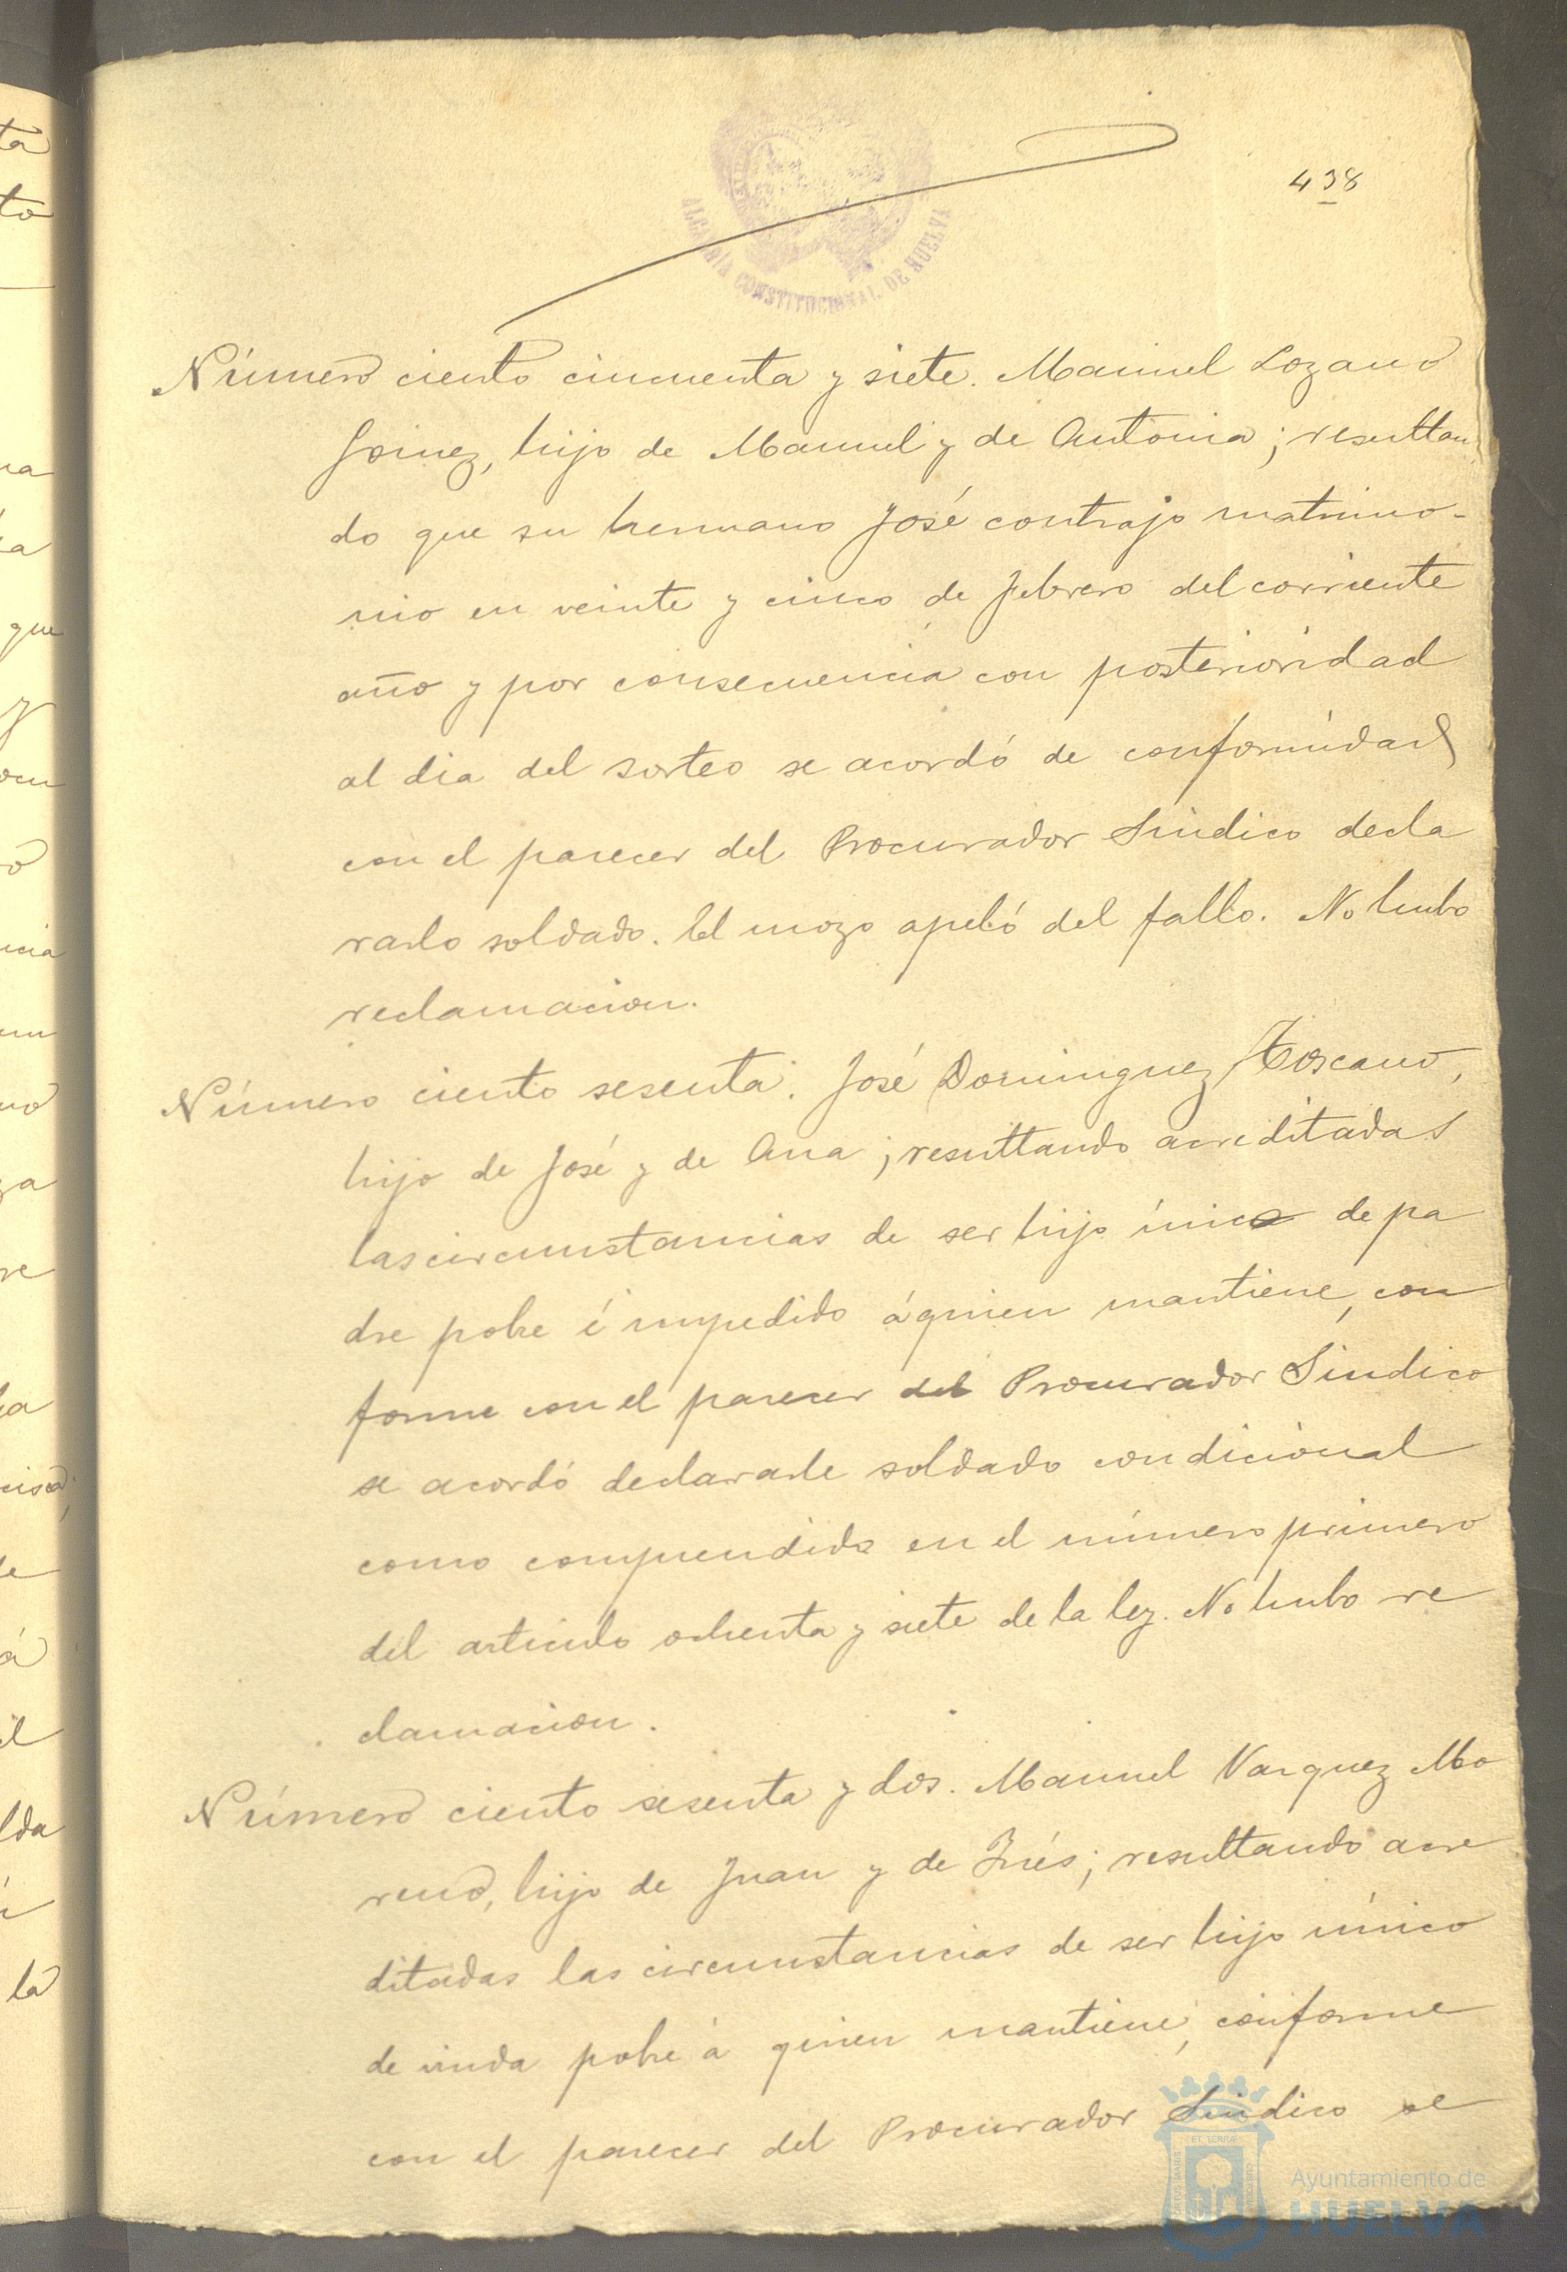 438
ALCALDÍA CONSTITUCIONAL DE HUELVA
Número ciento cincuenta y siete. Manuel Lozano
hijo de Manuel y de Antonia; resultan
do que su hermano José contrajo matrimo-
nio en veinte y cinco de febrero del corriente
año y por consecuencia con posterioridad
al dia del sorteo se acordó de conformidad
con el parecer del Procurador Síndico decla
rarlo soldado. El mozo apeló del fallo. No hubo
reclamacion.
Número ciento sesenta. José Dominguez Toscano,
hijo de José y de Ana; resultando acreditadas
las circunstancias de ser hijo único de pa
dre pobre é impedido á quien mantiene, con
forme con el parecer del Procurador Síndico
se acordó declararle soldado condicional
como comprendido en el número primero
del articulo ochenta y siete de la ley. No hubo re
clamacion.
Número ciento sesenta y dos. Manuel Varquez Mo
reno, hijo de Juan y de Inés; resultando acre
ditadas las circunstancias de ser hijo único
de viuda pobre á quien mantiene, conforme
con el parecer del Procurador Síndico se
Ayuntamiento de
HUELVA